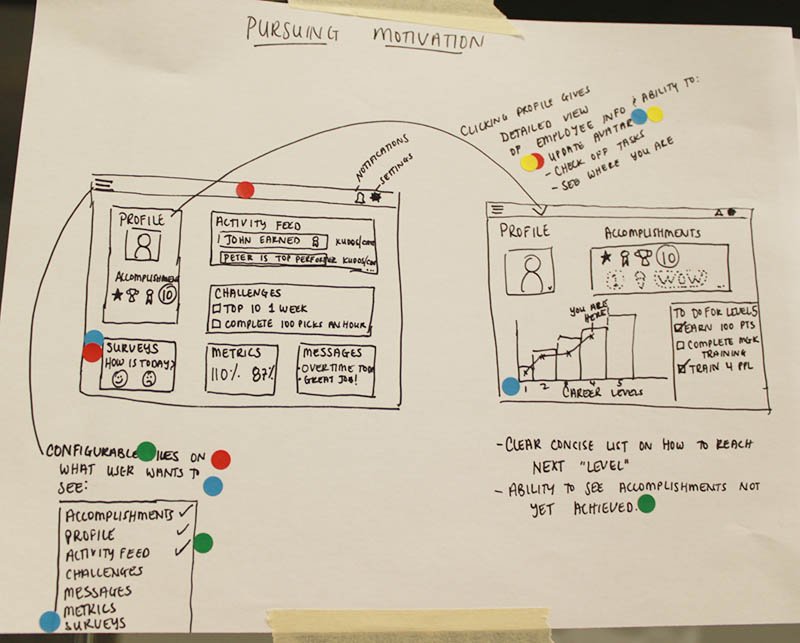 PURSUING MOTIVATION
CLICKING PROFILE GIVES
DETAILED VIEW
OF EMPLOYEE INFO & ABILITY TO:
- UPDATE AVATAR
- CHECK OFF TASKS
- SEE WHERE YOU ARE
NOTIFICATIONS
SETTINGS
PROFILE
ACCOMPLISHMENTS
10
ACTIVITY FEED
JOHN EARNED
KUDOS/COM
PETER IS TOP PERFORMER
KUDOS/COM
...
CHALLENGES
TOP 10 1 WEEK
COMPLETE 100 PICKS AN HOUR
SURVEYS
HOW IS TODAY?
METRICS
110% 87%
MESSAGES
- OVERTIME TODAY
- GREAT JOB!
PROFILE
ACCOMPLISHMENTS
10
1 WOW
YOU ARE
HERE
1 2 3 4 5
CAREER LEVELS
TO DO FOR LEVEL 5
EARN 100 PTS
COMPLETE MGR
TRAINING
TRAIN 4 PPL
CONFIGURABLE TILES ON
WHAT USER WANTS TO
SEE:
ACCOMPLISHMENTS ✓
PROFILE ✓
ACTIVITY FEED ✓
CHALLENGES
MESSAGES
METRICS
SURVEYS
- CLEAR CONCISE LIST ON HOW TO REACH
NEXT "LEVEL"
- ABILITY TO SEE ACCOMPLISHMENTS NOT
YET ACHIEVED.